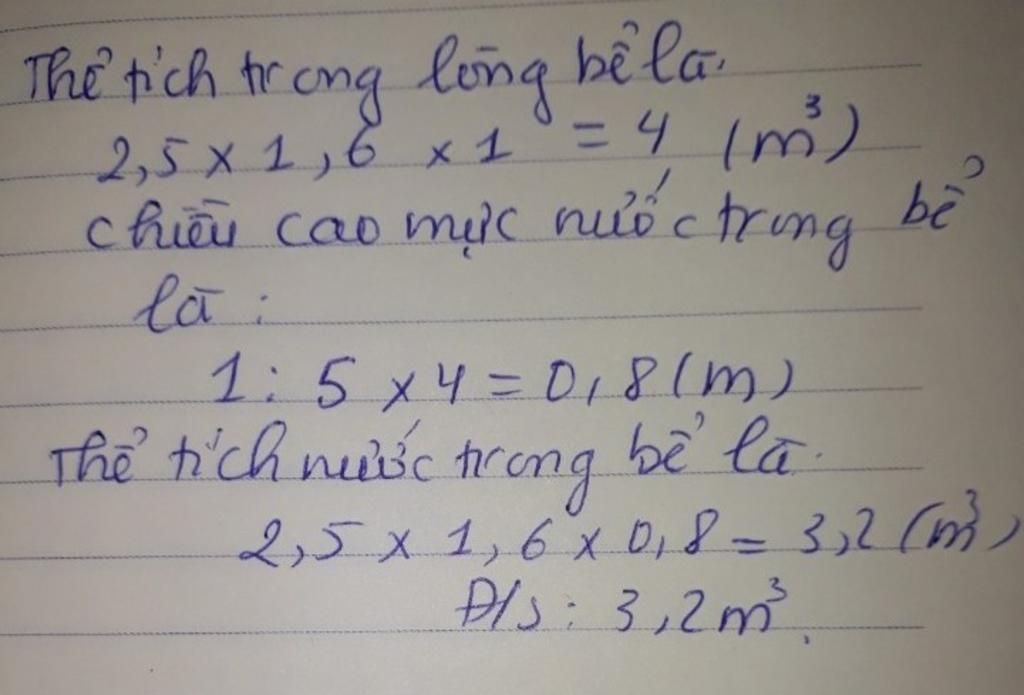 Thể tích trong lòng bể là.
2,5 x 1,6 x 1 = 4 (m³)
chiều cao mực nước trong bể
là :
1 : 5 x 4 = 0,8 (m)
Thể tích nước trong bể là.
2,5 x 1,6 x 0,8 = 3,2 (m³)
Đ/s : 3,2m³.